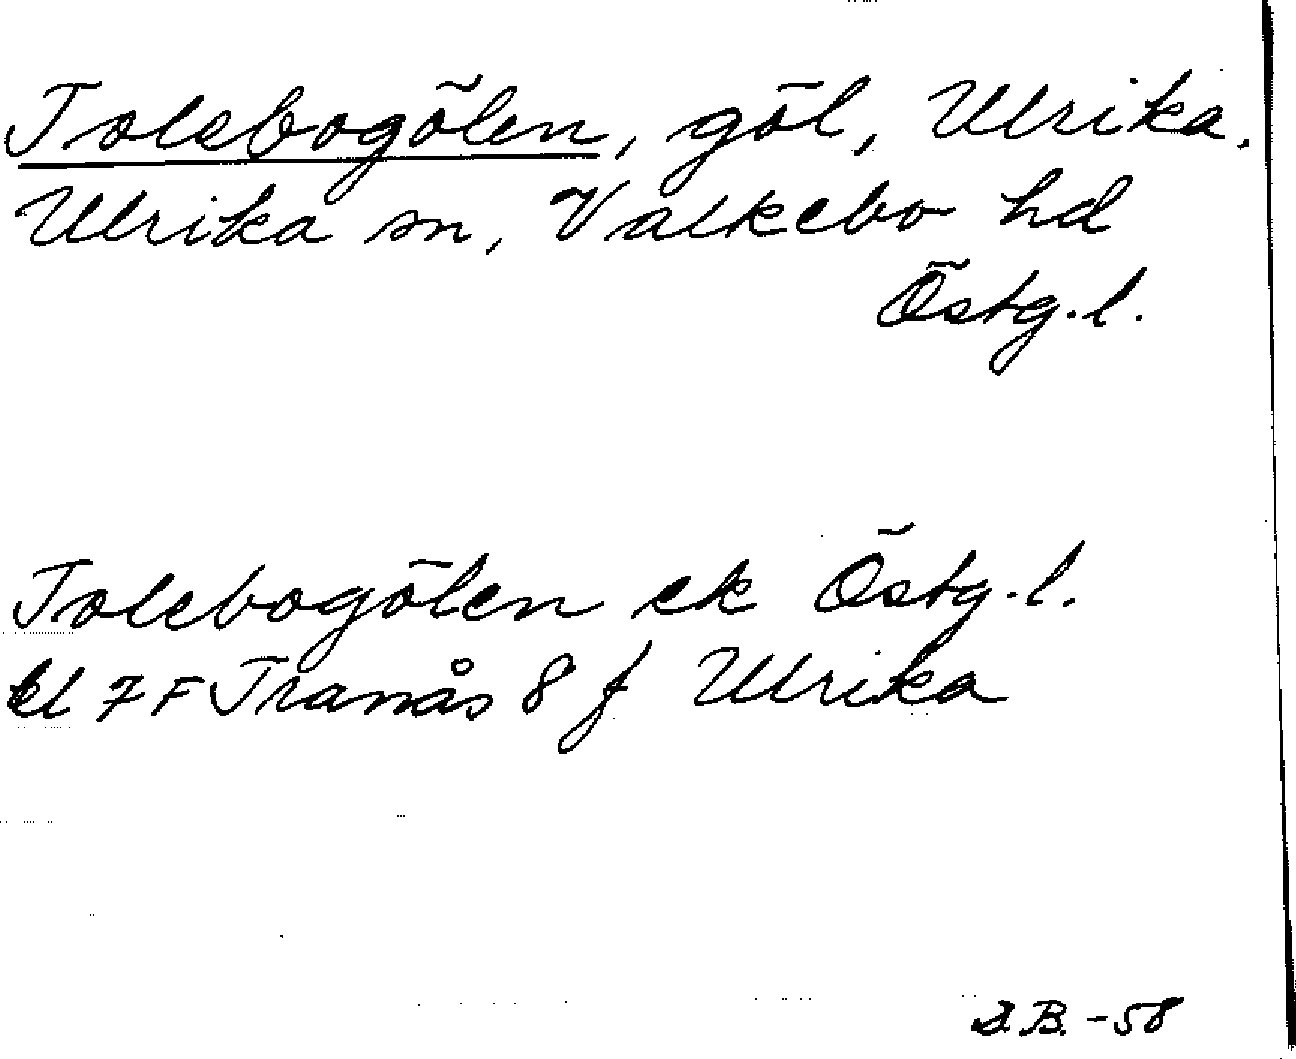 Tolebogölen, göl, Ulrika.
Ulrika sn, Valkebo hd
Östg.l.
Tolebogölen ek Östg.l.
bl 7 F Tranås 8 f Ulrika
B. -58